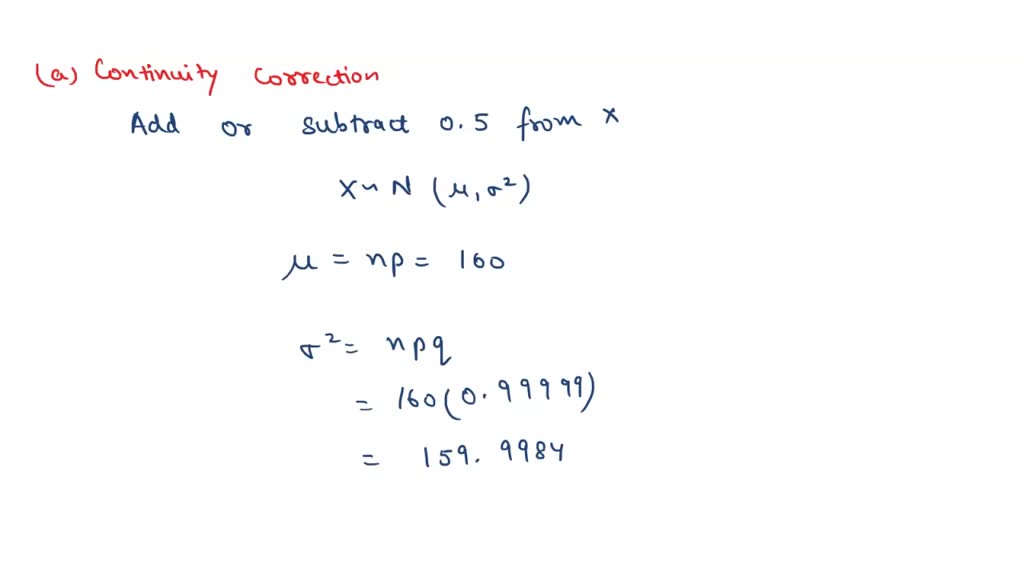 (a) Continuity correction
Add or subtract 0.5 from x
X ~ N (μ, σ²)
μ = np = 160
σ² = npq
= 160(0.99999)
= 159.9984